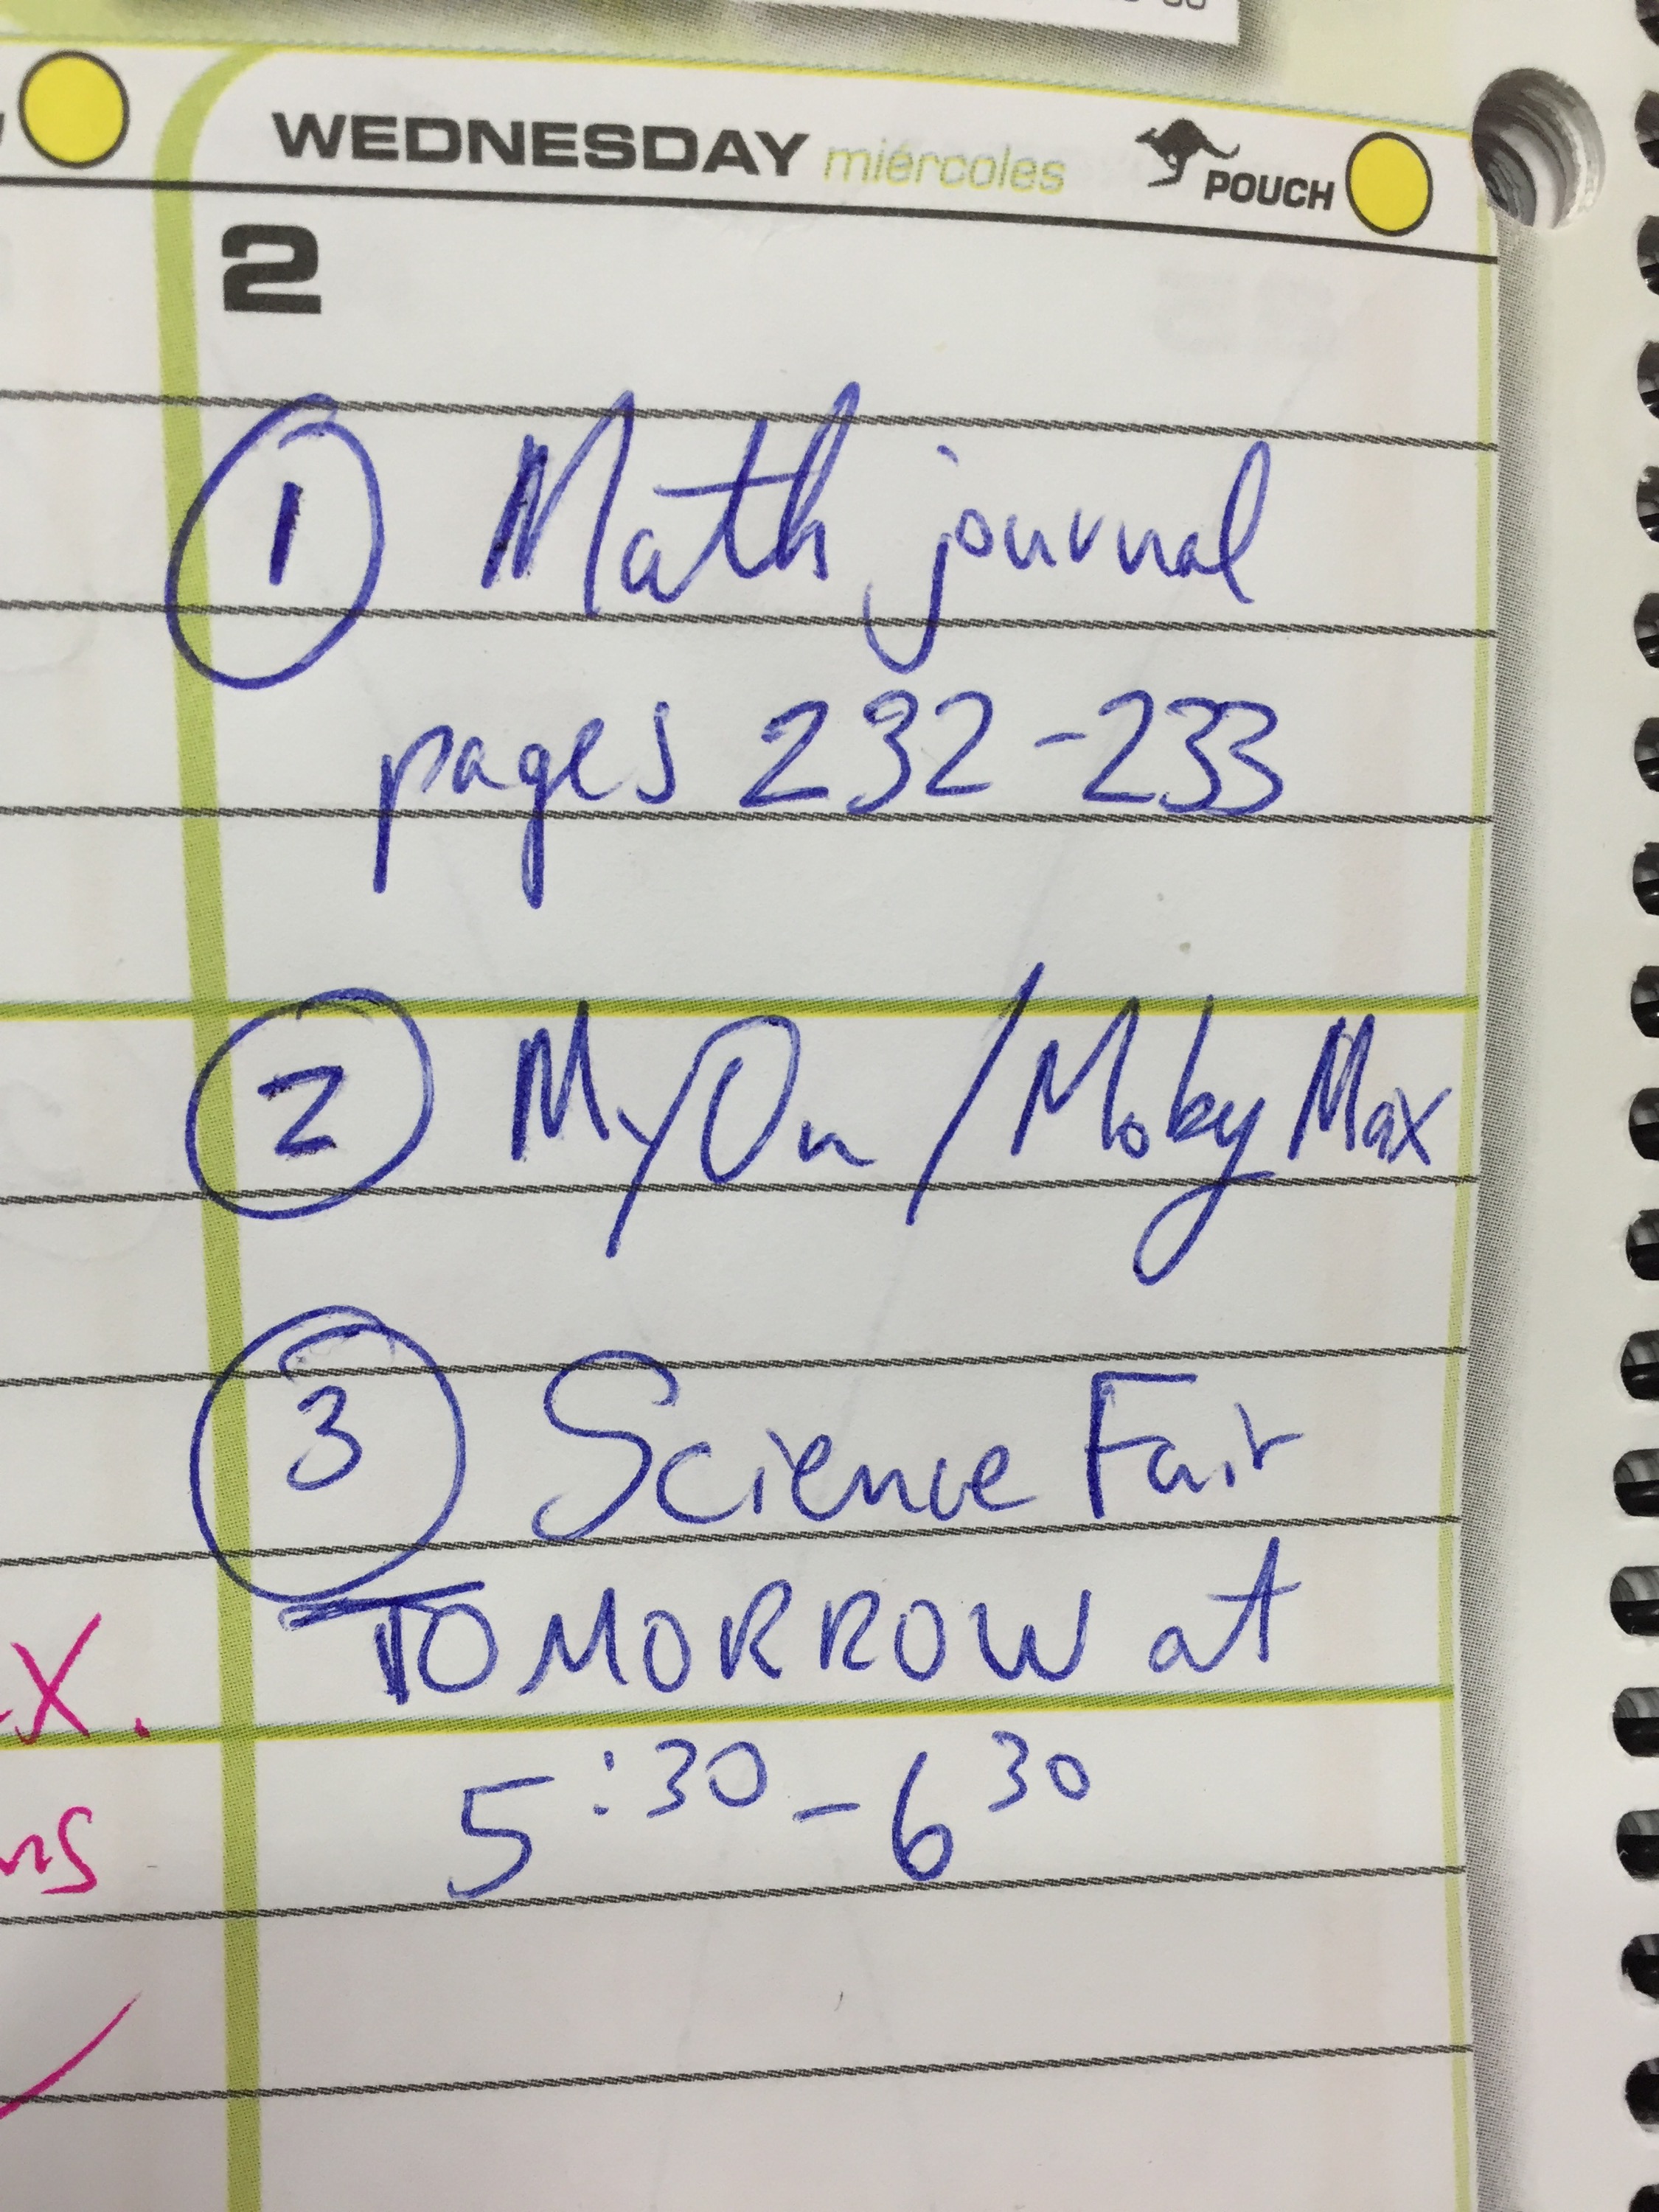 WEDNESDAY miércoles POUCH
2
① Math journal
pages 232-233
② MyOn / Moby Max
③ Science Fair
TOMORROW at
5:30 - 6 30
x.